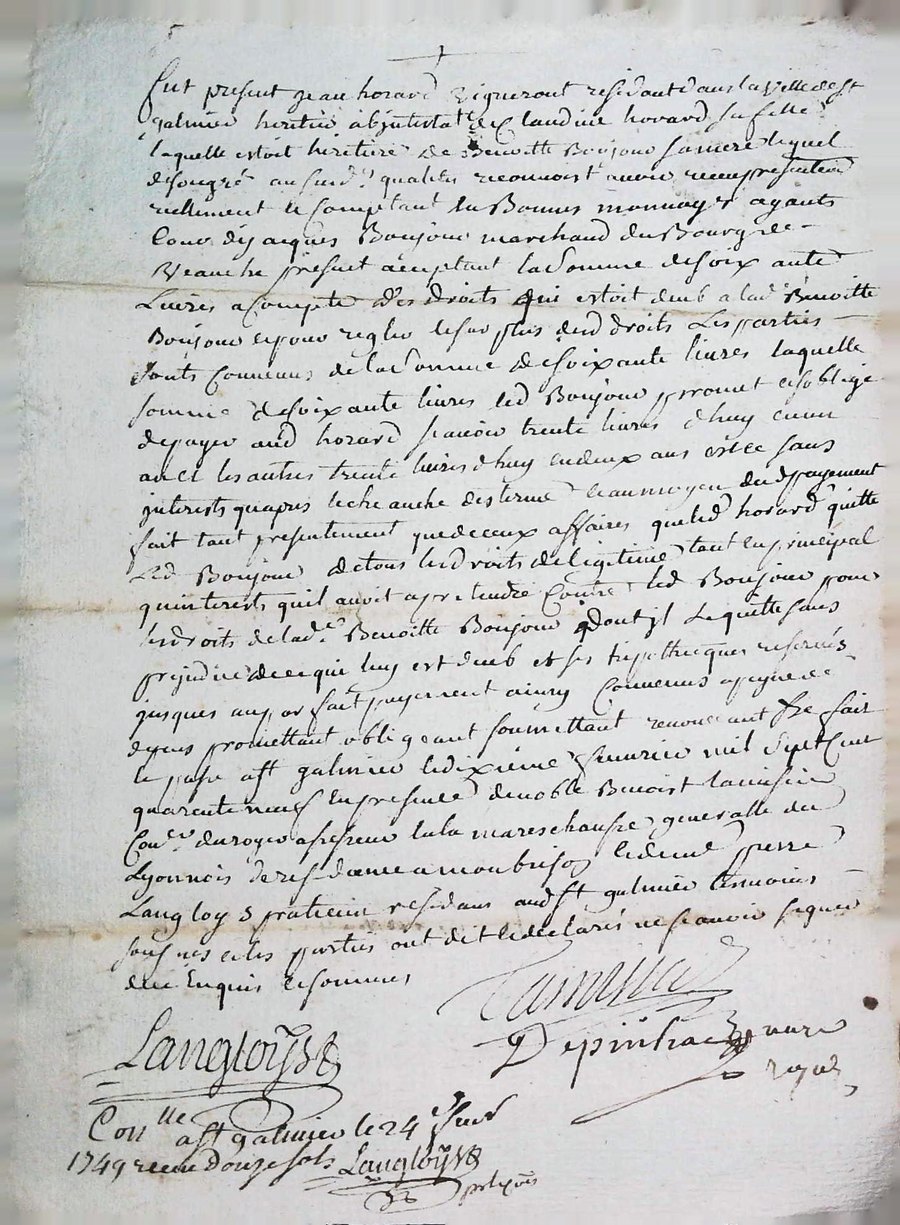 fut present jean horard Vigneront residant dans la ville de st
galmier heritier abjntestat de Claudine horard sa fille
laquelle estoit heritiere de Benoitte Boujour sa mere lequel
de son gré au susd. qualités reconnoist avoir receu presentement
reellement et Comptant en Bonnes monnoyes ayants
Cour de jacques Boujour marchand du Bourg de
Veauche present acceptant la Somme de soix ante
Livres a Compte des droits qui estoit deub a lad. Benoitte
Boujour et pour regler le sur plus desd droits Les parties
sonts Convenus de la Somme de soixante livres laquelle
somme de soixante livres led Boujour promet et soblige
de payer aud horard scavoir trente livres dhuy en un
an et les autres trente livres dhuy en deux ans et ce sans
jnterests quapres lecheanche des terme et au moyen dud payement
fait tant presentement que de ceux affaires que led horard quitte
Led Boujour de tous les droits de legitime tant en principal
quinterests quil avoit a pretendre Contre led Boujour pour
les droits de lad.e Benoitte Boujour dont jl le quitte sans
prejudice de ce qui luy est deub et ses hipothecques reservés
jusques au parfait payement ainsy Convenus a peyne de
depens promettant obligeant soumettant renoncant &c fait
et passé a st galmier le dixieme fevrier mil sept Cent
quarente neuf En presence de noble Benoist
Con.er du roy assesseur en la mareschaussé generalle du
Lyonnois de residance a monbrison et de me pierre
Langloys praticien residans aud st galmier temoins
sousnes et les parties ont dit et declarés ne scavoir signer
de ce Enquis et sommés
Langloys
Depinhac notaire
royal
Con.lle a st galmier le 24 e fevr
1749 receu Douze sols Langloys